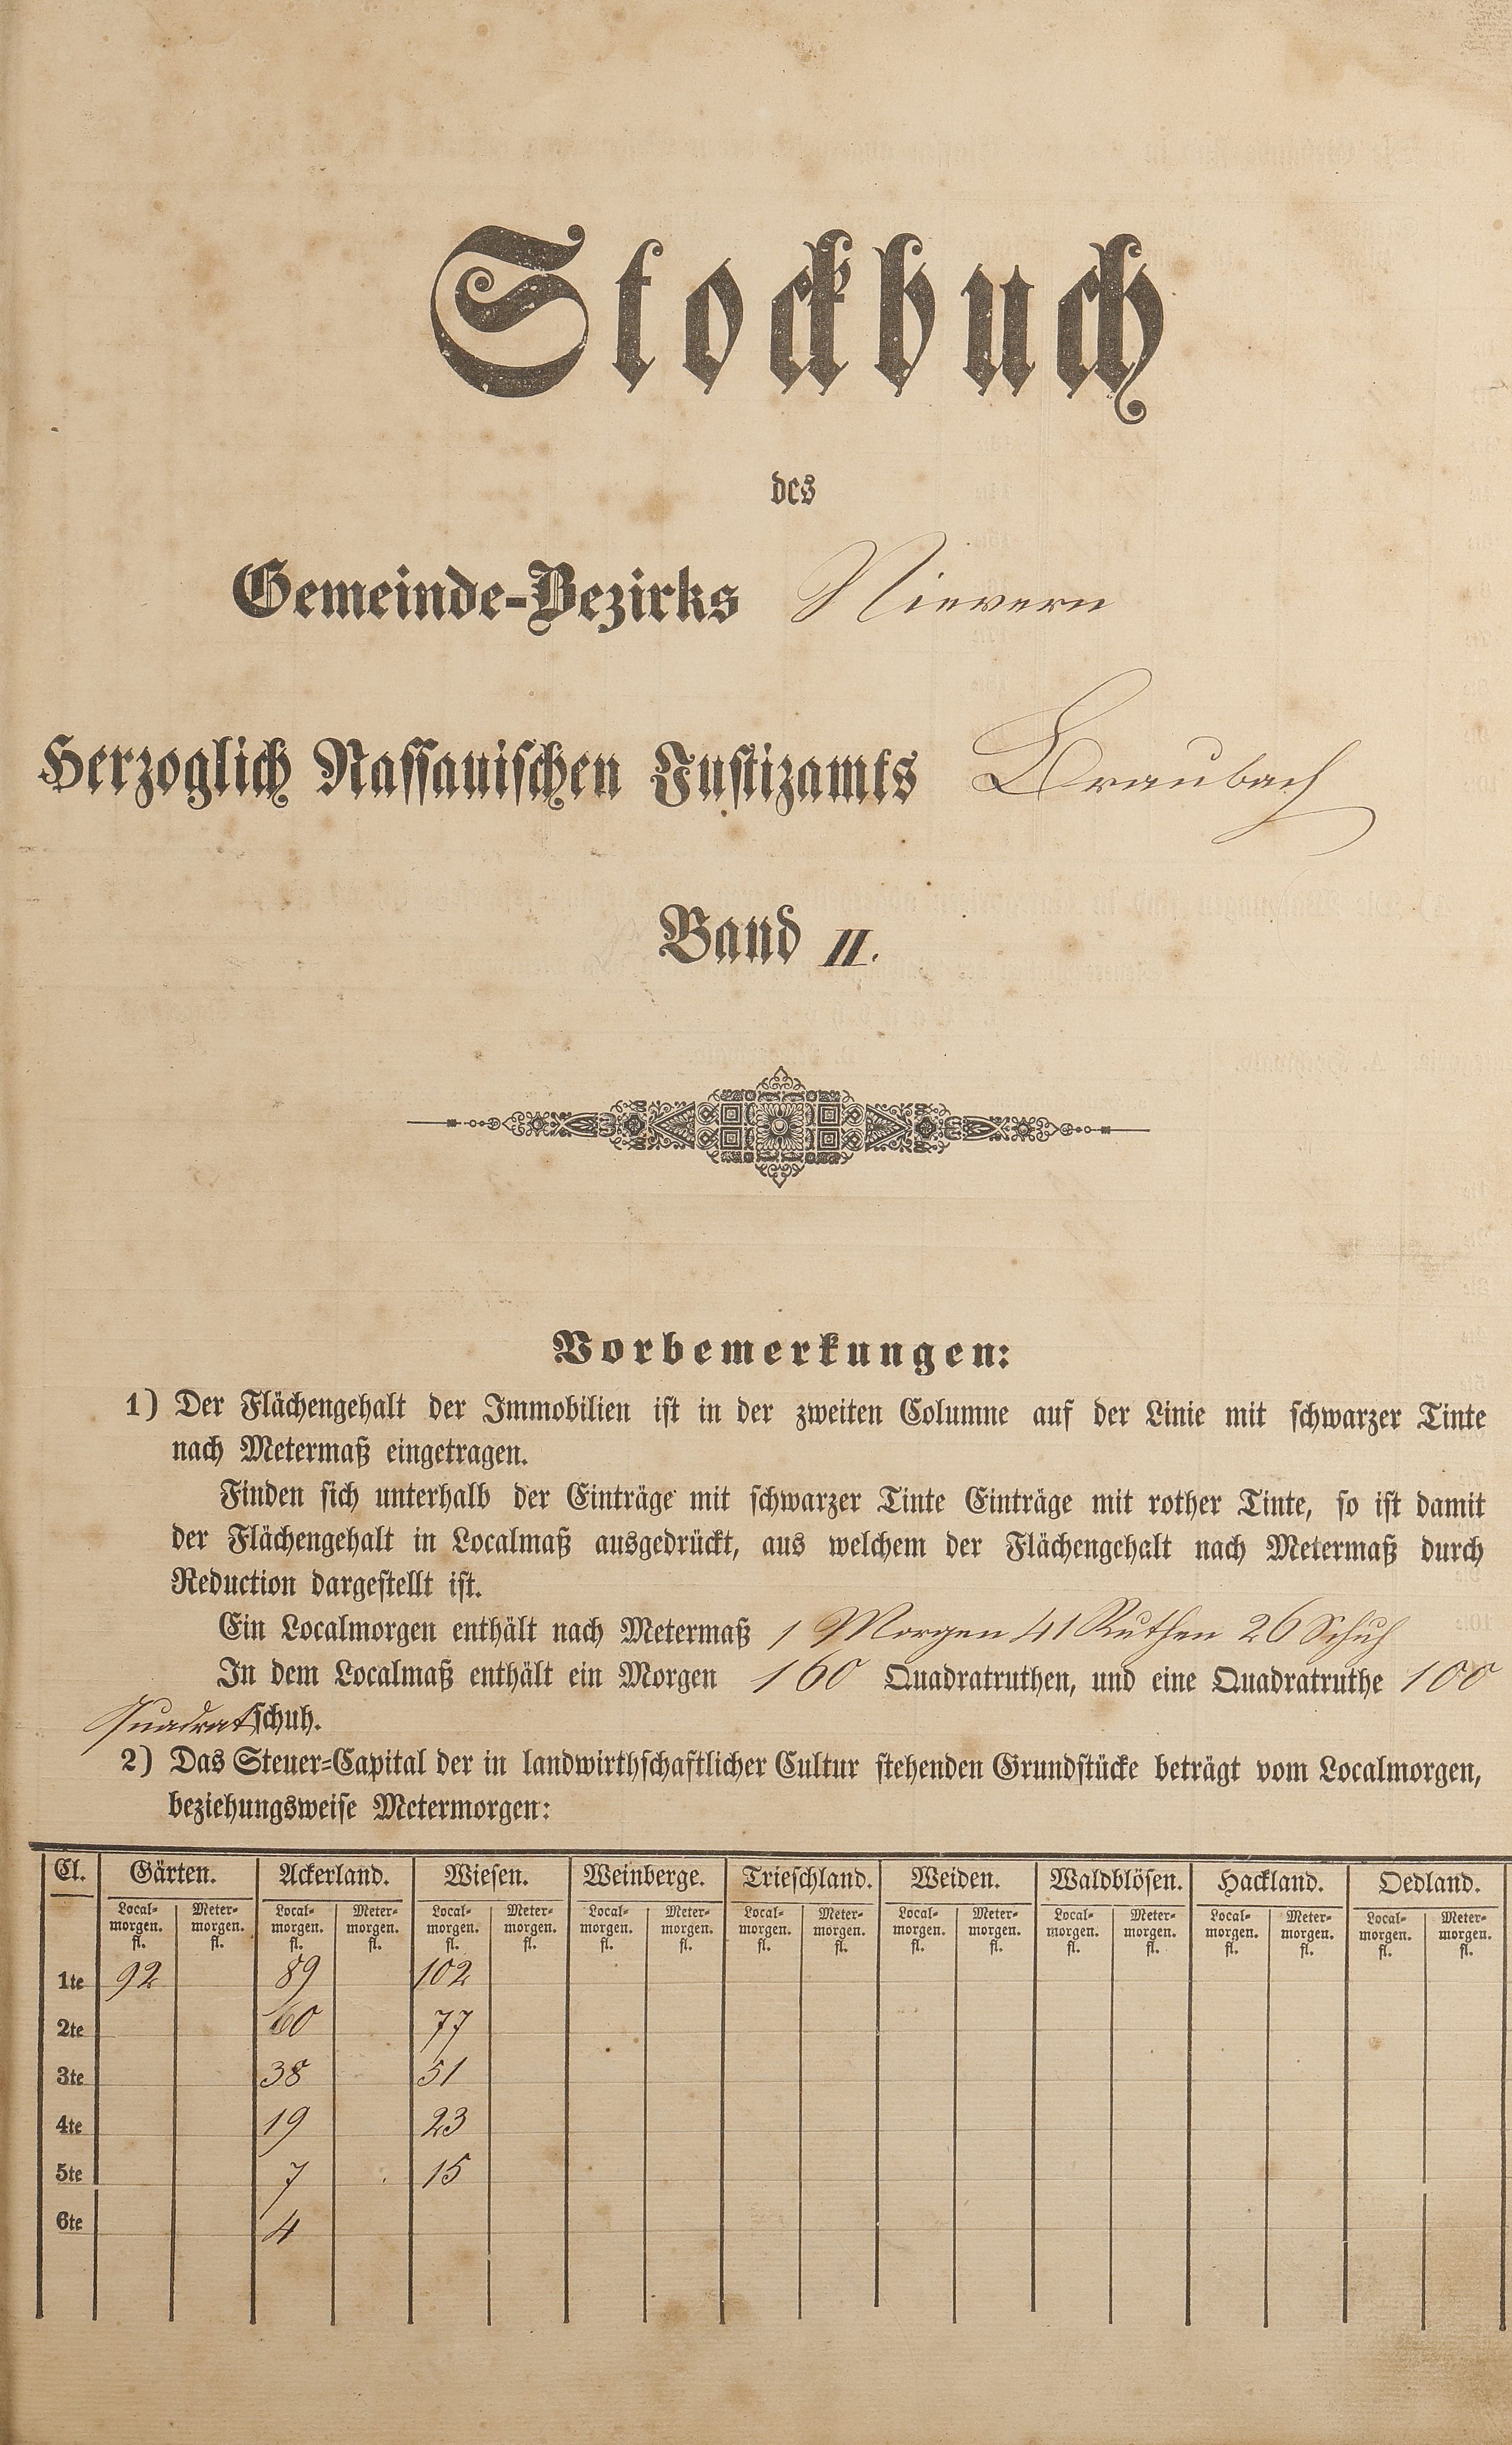 Stockbuch
des
Gemeinde-Bezirks Nievern
Herzoglich Nassauischen Justizamts Braubach
Band II.
Vorbemerkungen:
1) Der Flächengehalt der Immobilien ist in der zweiten Columne auf der Linie mit schwarzer Tinte
nach Metermaß eingetragen.
Finden sich unterhalb der Einträge mit schwarzer Tinte Einträge mit rother Tinte, so ist damit
der Flächengehalt in Localmaß ausgedrückt, aus welchem der Flächengehalt nach Metermaß durch
Reduction dargestellt ist.
Ein Localmorgen enthält nach Metermaß 1 Morgen 41 Ruthen 26 Schuh
In dem Localmaß enthält ein Morgen 160 Quadratruthen, und eine Quadratruthe 100
Quadratschuh.
2) Das Steuer-Capital der in landwirthschaftlicher Cultur stehenden Grundstücke beträgt vom Localmorgen,
beziehungsweise Metermorgen:
Cl. Gärten. Ackerland. Wiesen. Weinberge. Trieschland. Weiden. Waldblösen. Hackland. Oedland.
Local- Meter- Local- Meter- Local- Meter- Local- Meter- Local- Meter- Local- Meter- Local- Meter- Local- Meter- Local- Meter-
morgen. morgen. morgen. morgen. morgen. morgen. morgen. morgen. morgen. morgen. morgen. morgen. morgen. morgen. morgen. morgen. morgen. morgen.
fl. fl. fl. fl. fl. fl. fl. fl. fl. fl. fl. fl. fl. fl. fl. fl. fl. fl.
1te 92 89 102
2te 60 77
3te 38 51
4te 19 23
5te 7 15
6te 4